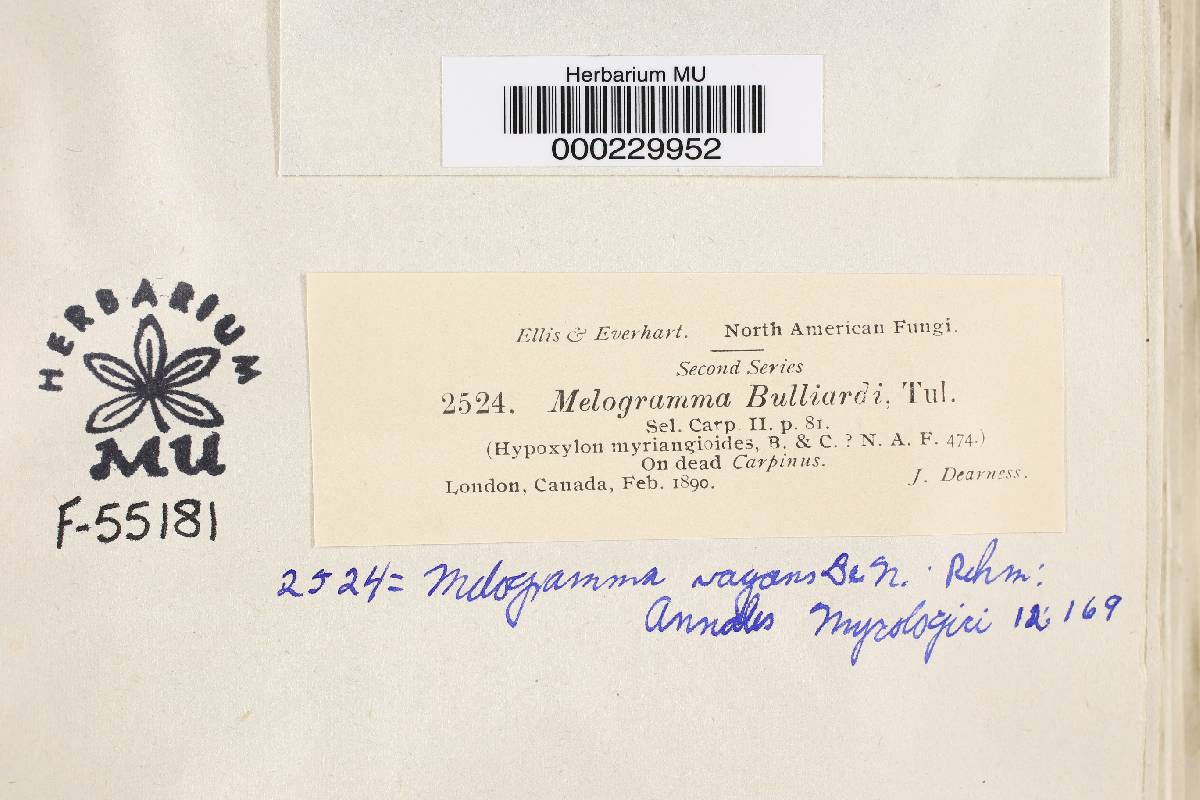 Herbarium MU
000229952
HERBARIUM
MU
F-55181
Ellis & Everhart. North American Fungi.
Second Series
2524. Melogramma Bulliardi, Tul.
Sel. Carp. II. p. 81.
(Hypoxylon myriangioides, B. & C. ? N. A. F. 474.)
On dead Carpinus.
London, Canada, Feb. 1890. J. Dearness.
2524 = Melogramma vagans De N. Rehm:
Annales Mycologici 12: 169